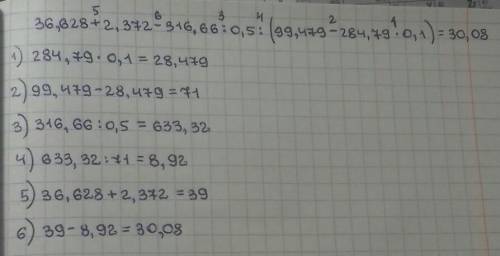 5 6 3 4 2 1
36,628+2,372-316,66:0,5:(99,479-284,79·0,1)=30,08
1) 284,79·0,1=28,479
2) 99,479-28,479=71
3) 316,66:0,5=633,32
4) 633,32:71=8,92
5) 36,628+2,372=39
6) 39-8,92=30,08